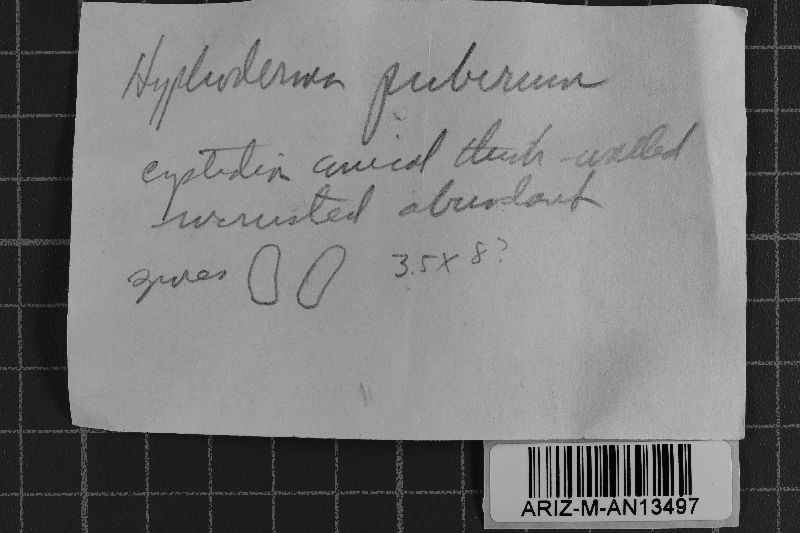 Hyphoderma puberum
cystidia conical thick-walled
incrusted abundant
spores 3.5 x 8?
ARIZ-M-AN13497